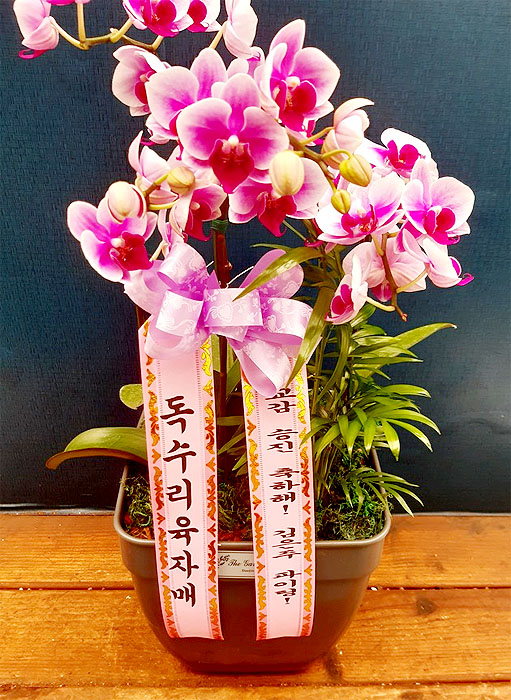 독수리육자매
교감 승진 축하해! 김은주 파이팅!
The Gar